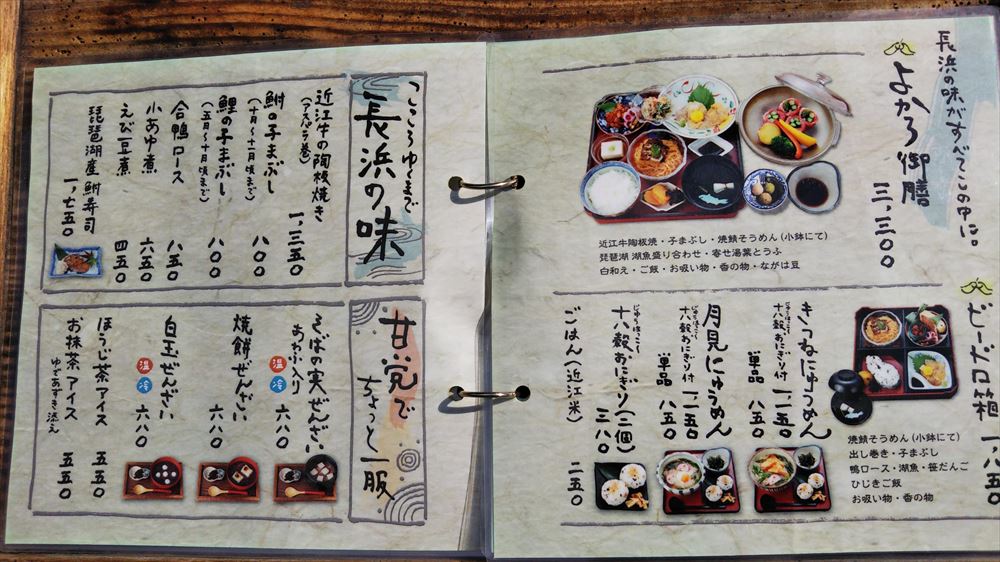 長浜の味がすべてこの中に。
よかろ御膳
三,三〇〇
近江牛陶板焼・子まぶし・焼鯖そうめん(小鉢にて)
琵琶湖 湖魚盛り合わせ・寄せ湯葉とうふ
白和え・ご飯・お吸い物・香の物・ながは豆
ビードロ箱 一,八五〇
焼鯖そうめん(小鉢にて)
出し巻き・子まぶし
鴨ロース・湖魚・笹だんご
ひじきご飯
お吸い物・香の物
きつねにゅうめん
じゅうはっこく
十八穀おにぎり付 一,一五〇
単品 八五〇
月見にゅうめん
じゅうはっこく
十八穀おにぎり付 一,一五〇
単品 八五〇
じゅうはっこく
十八穀おにぎり(二個) 三八〇
ごはん(近江米) 二五〇
こころゆくまで
長浜の味
近江牛の陶板焼き
(アスパラ巻) 一,三五〇
鮒の子まぶし
(十月〜十二月頃まで) 八〇〇
鯉の子まぶし
(五月〜十月頃まで) 八〇〇
合鴨ロース 八五〇
小あゆ煮 六五〇
えび豆煮 四五〇
琵琶湖産 鮒寿司 一,七五〇
甘党で
ちょっと一服
そばの実ぜんざい
あわふ入り
温 冷 六八〇
焼餅ぜんざい 六八〇
白玉ぜんざい
温 冷 六八〇
ほうじ茶アイス 五五〇
お抹茶アイス 五五〇
ゆであずき添え